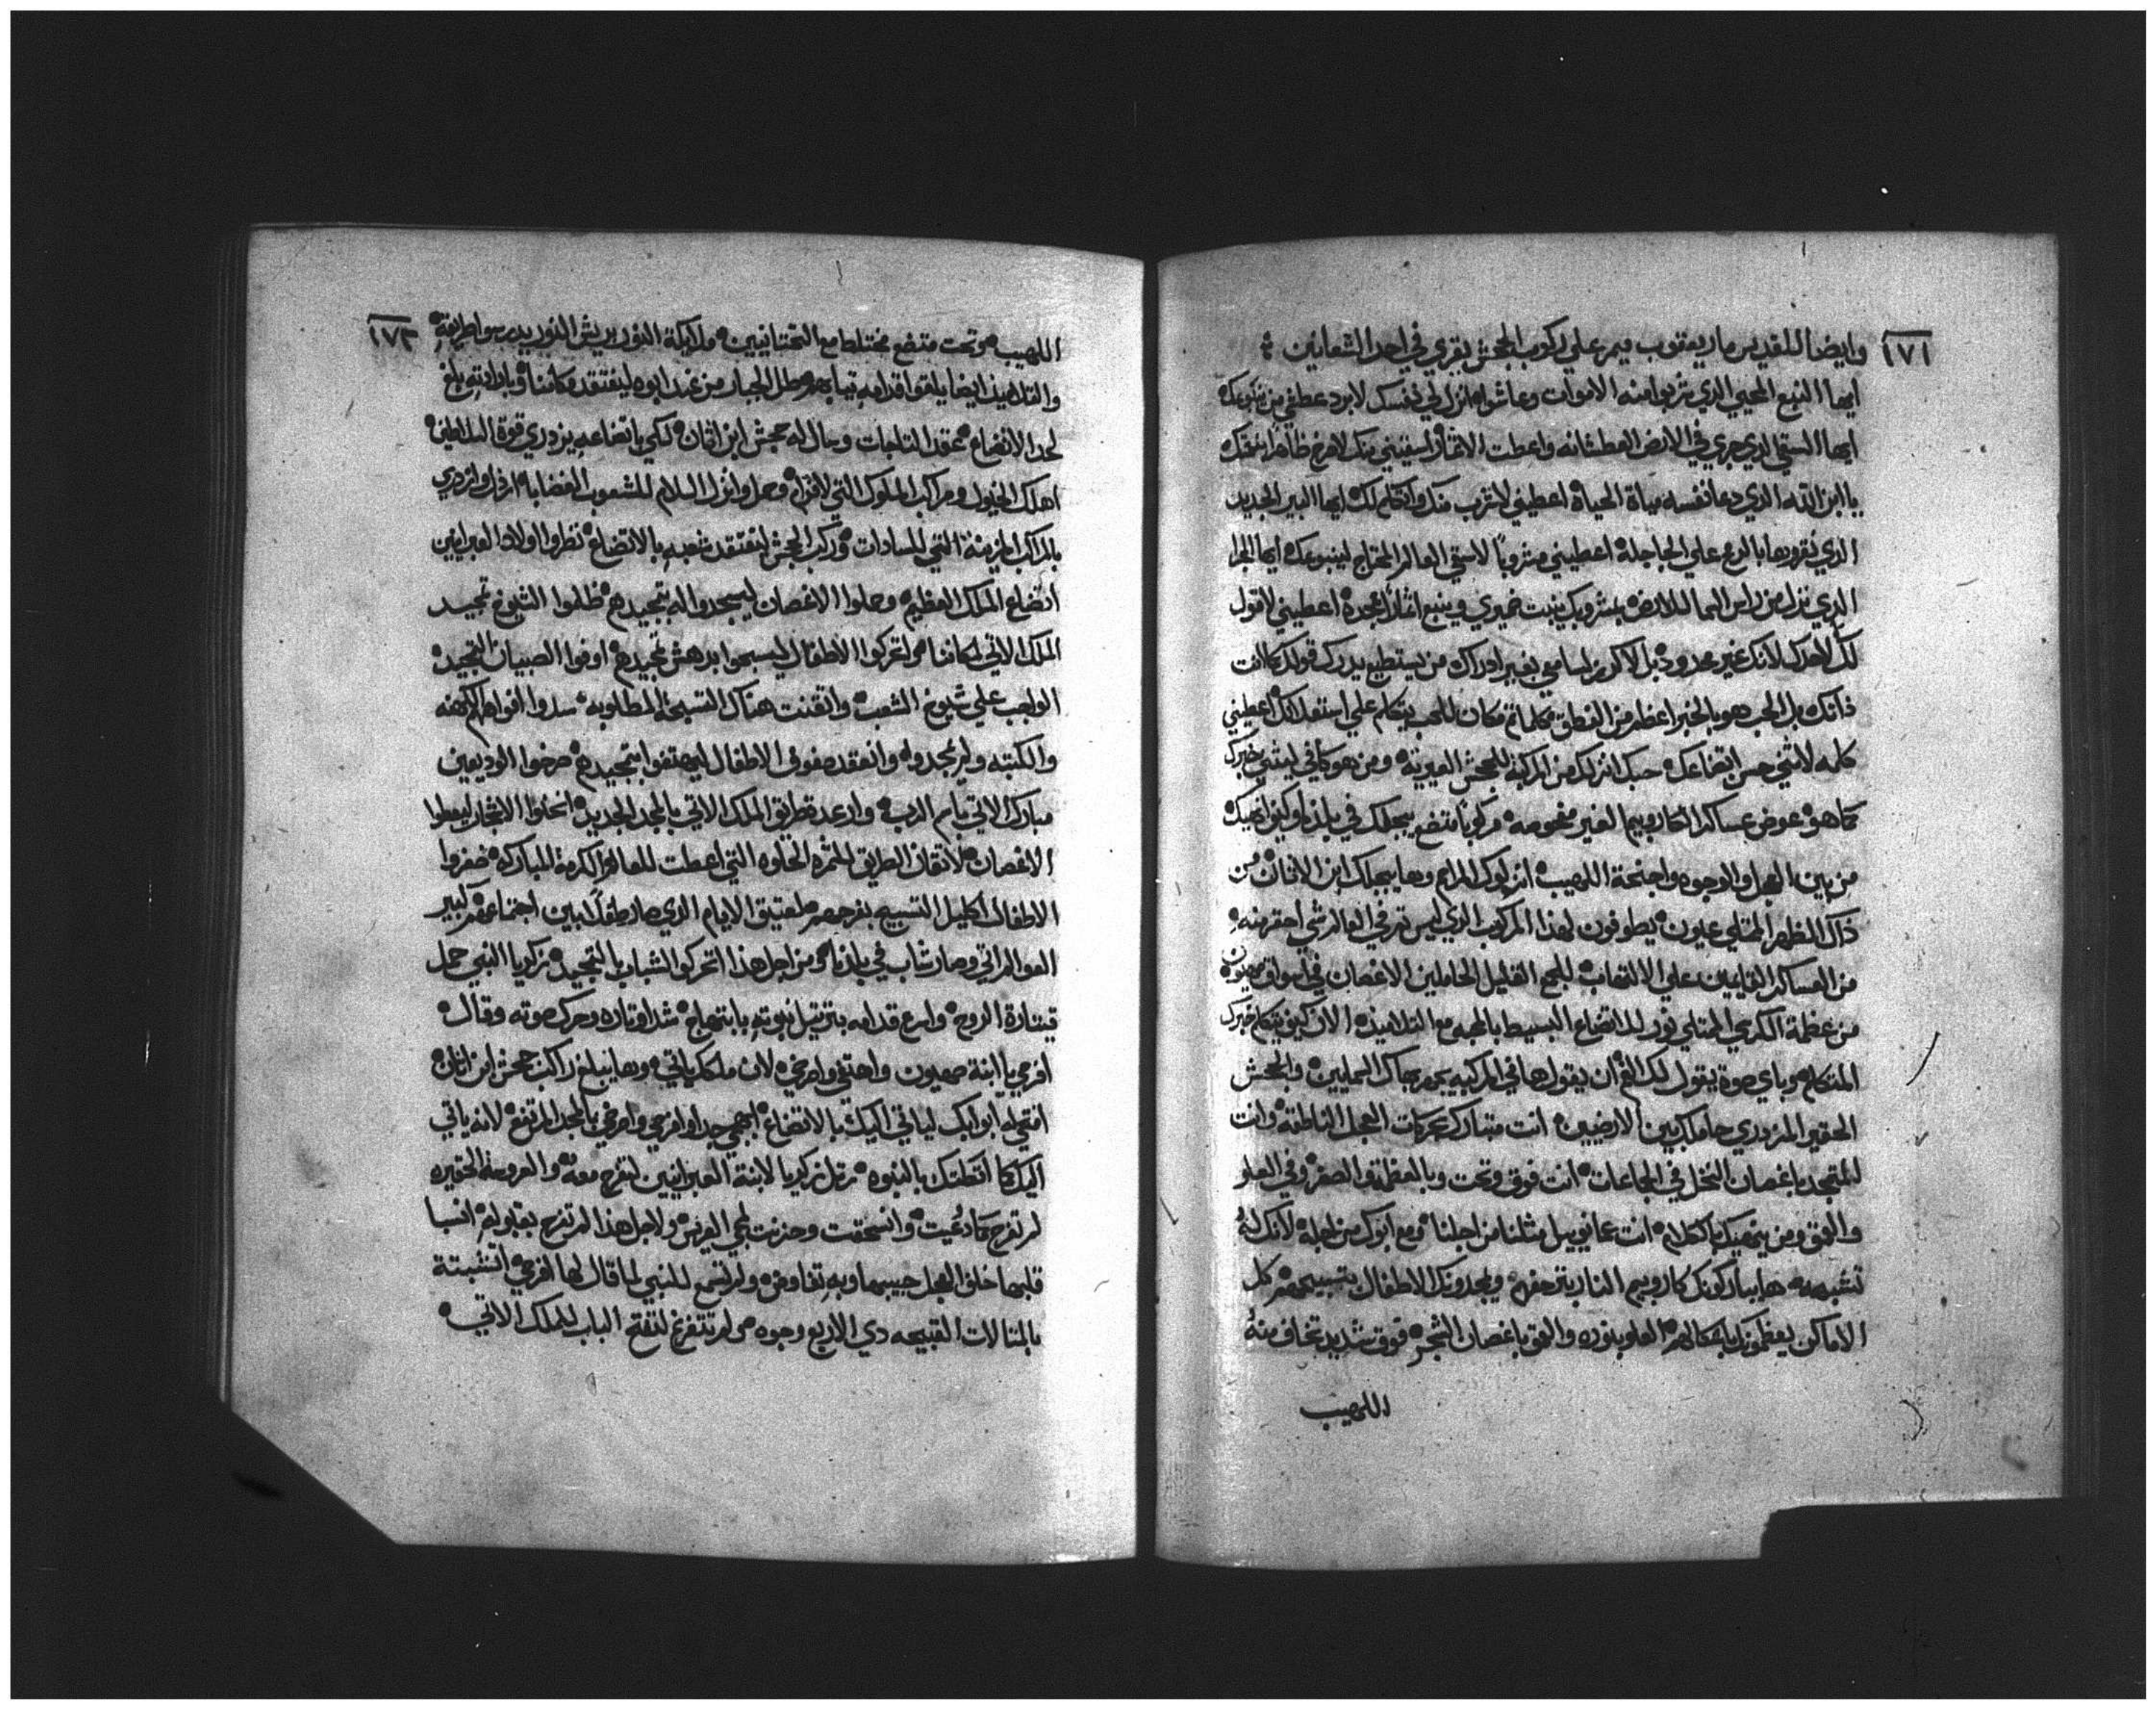 ١٧١
وايضا للقديس مار يعقوب ميمر علي ركوب الجحش يقري في احد الشعانين
ايها النبع المحيي الذي شربوا منه الاموات وعاشوا انزل لي نفسك لابرد عطشي من ينبوعك
ايها السقي الذي جري في الارض العطشانه واعطت الاثمار اسقيني منك
يا ابن الله الذي دعا نفسه مياة الحياة اعطيني لاشرب منك واتكلم لك ايها البير الجديد
الذي نقروها بالرمح علي الجاجلة اعطيني مشروباً لاسقي العالم المحتاج لينبوعك ايها
الذي نزل من راس السما للارض بمشروبك ينبت ضميري وينبع اثماراً اعطيني لاقول
لك لانك غير محدود بل لاكرز لسامعي بغير ادراك من يستطيع يدرك قولك كما انت
ذاتك بل الحب هو بالخبر اعظم من النطق مكان للحب يتكلم علي اعطيني
كلمه لاثني حسن اتضاعك حبك انزلك من المركبة للجحش ومن هو كافي ليثني خبرك
كما هو عوض عساكر الكاروبيم الغير مفحوصه مركوباً متضع يحملك في بلدنا وكيف انهيك
من بين العجل والوجوه واجنحة اللهيب انزلوك المراحم وها يحملك ابن الاتان من
ذاك الظهر الممتلي عيون يطوفون لهذا المركوب الذي ليس في العالم شي احقر منه
من العساكر القايمين علي الالتهاب للجمع القليل الحاملين الاغصان في اسواق صهيون
من عظمة الكرسي الممتلي نور للاتضاع البسيط بالمحبه مع التلاميذ الان كيف يتكلم خبرك
المتكلم وباي صوت يقول لك الفم ان يقول ها في المركبه السماييين والجحش
الحقير المزدري حاملك بين الارضيين انت متبارك بحركات العجل الناطقه وانت
المتمجد باغصان النخل في الجماعات انت فوق وتحت وبالعظمة والصغر وفي العلو
والعمق ومن يتميك بالكلام انت عمانوييل مثلنا من اجلنا ومع ابوك من اجله لانك له
تشبه ها يباركونك كاروبيم النار بترجفهم ويمجدونك الاطفال بتسبيحهم كل
الاماكن يعظمونك باشكالهم العلو بنوره والعمق باغصان الشجر فوق شديد تخاف منه
اللهيب
١٧٢
اللهيب وتحت متضع مختلط مع التحتانيين ملايكة النور بريش النور
والتلاميذ ايضا يلقوا قدامه تيابهم الجبار من عند ابوه ليفتقد مكاننا وبارادته بلغ
لحد الاتضاع عقد التاجات وحال له جحش ابن اتان لكي باتضاعه يزدري قوة السلاطين
اهلك الخيول ومراكب الملوك التي لافرام وحمل وانزل السلام للشعوب الغضابا ارذل وازدري
بالمراكب المزينة التي للسادات وركب الجحش ليفتقد شعبه بالاتضاع نظروا اولاد العبرانيين
اتضاع الملك العظيم وحملوا الاغصان ليسجدوا له بتمجيدهم ظلموا الشيوخ تمجيد
الملك الاتي لمكاننا وتحركوا الاطفال ليسبحوا بدهش تمجيدهم اوفوا الصبيان التمجيد
الواجب علي شيوخ الشعب واتقنت هناك التسبحة المطلوبه سدوا افواههم الكهنه
والكتبه ولم يمجدوه وانعقد صفوف الاطفال ليهتفوا بتمجيدهم صرخوا الوديعين
مبارك الاتي باسم الرب وارعد طريق الملك الاتي بالمجد الجديد الاشجار ليعطوا
الاغصان لاتقان الطريق للثمره الحلوه التي اعطت للعالم الكرمة المباركه ضفروا
الاطفال اكليل التسبيح بفرحهم لعتيق الايام الذي صار طفلاً بين اجتماعهم كبير
العوالم اتي وصار شاب في بلدنا ومن اجل هذا تحركوا الشباب بالتمجيد زكريا النبي حمل
قيتارة الروح واسرع قدامه بترتيل نبوته بابتهاج شد اوتاره وحرك صوته وقال
افرحي يا ابنة صهيون واهتفي وامرحي لان ملكك ياتي وها يبلغ راكب جحش ابن اتان
افتحي له ابوابك لياتي اليك بالاتضاع ابتهجي جدا وافرحي وامرحي بالمجد المرتفع لانه ياتي
اليك كما بالنبوه رتل زكريا لابنة العبرانيين لتفرح معه والعروسة الحقيره
لم تفرح كما دعيت وانسحقت وحزنت لمجي العريس ولاجل هذا لم تفرح بقبوله انسبا
قلبها خلف العجل حبيبها وبه تفاوض ولم تسمع للنبي لما قال لها افرحي اتشبتة
بالمتالات القبيحه دي الاربع وجوه ولم تتفرغ لتفتح الباب للملك الاتي